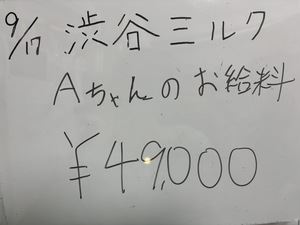 9/17 渋谷ミルク
Aちゃんのお給料
¥49,000